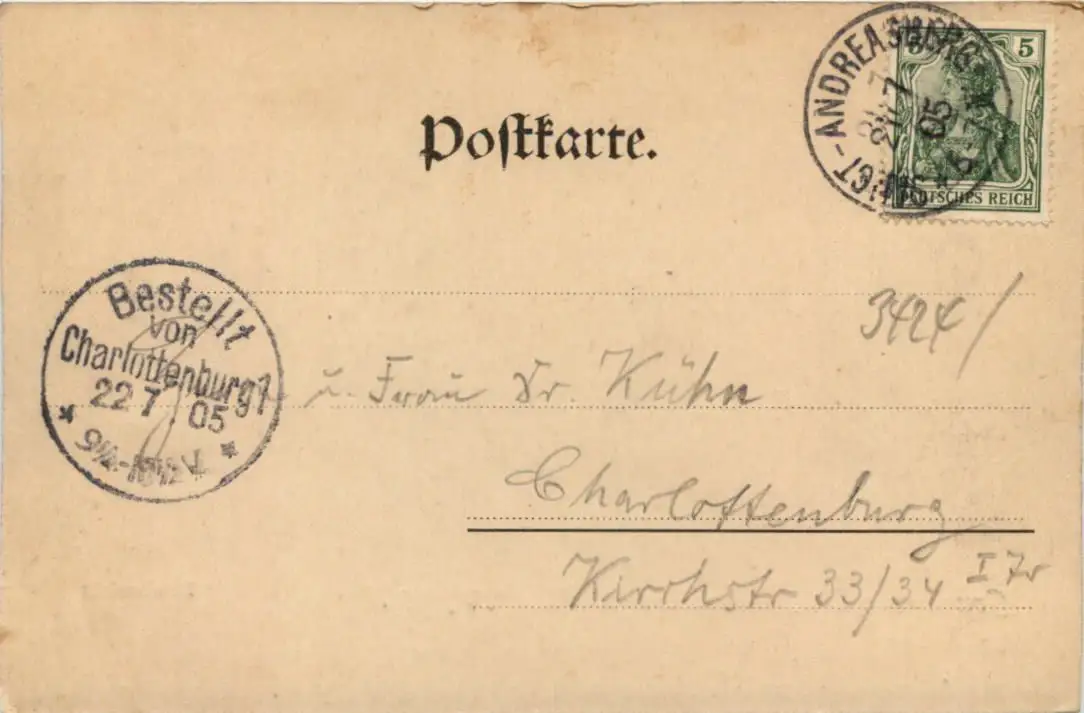 Postkarte.
SANKT-ANDREASBERG
21 7
05
5
DEUTSCHES REICH
3424/
Bestellt
von
Charlottenburg 1
22 7 05
u. Frau Dr. Kühn
Charlottenburg
Kirchstr 33/34 I Tr